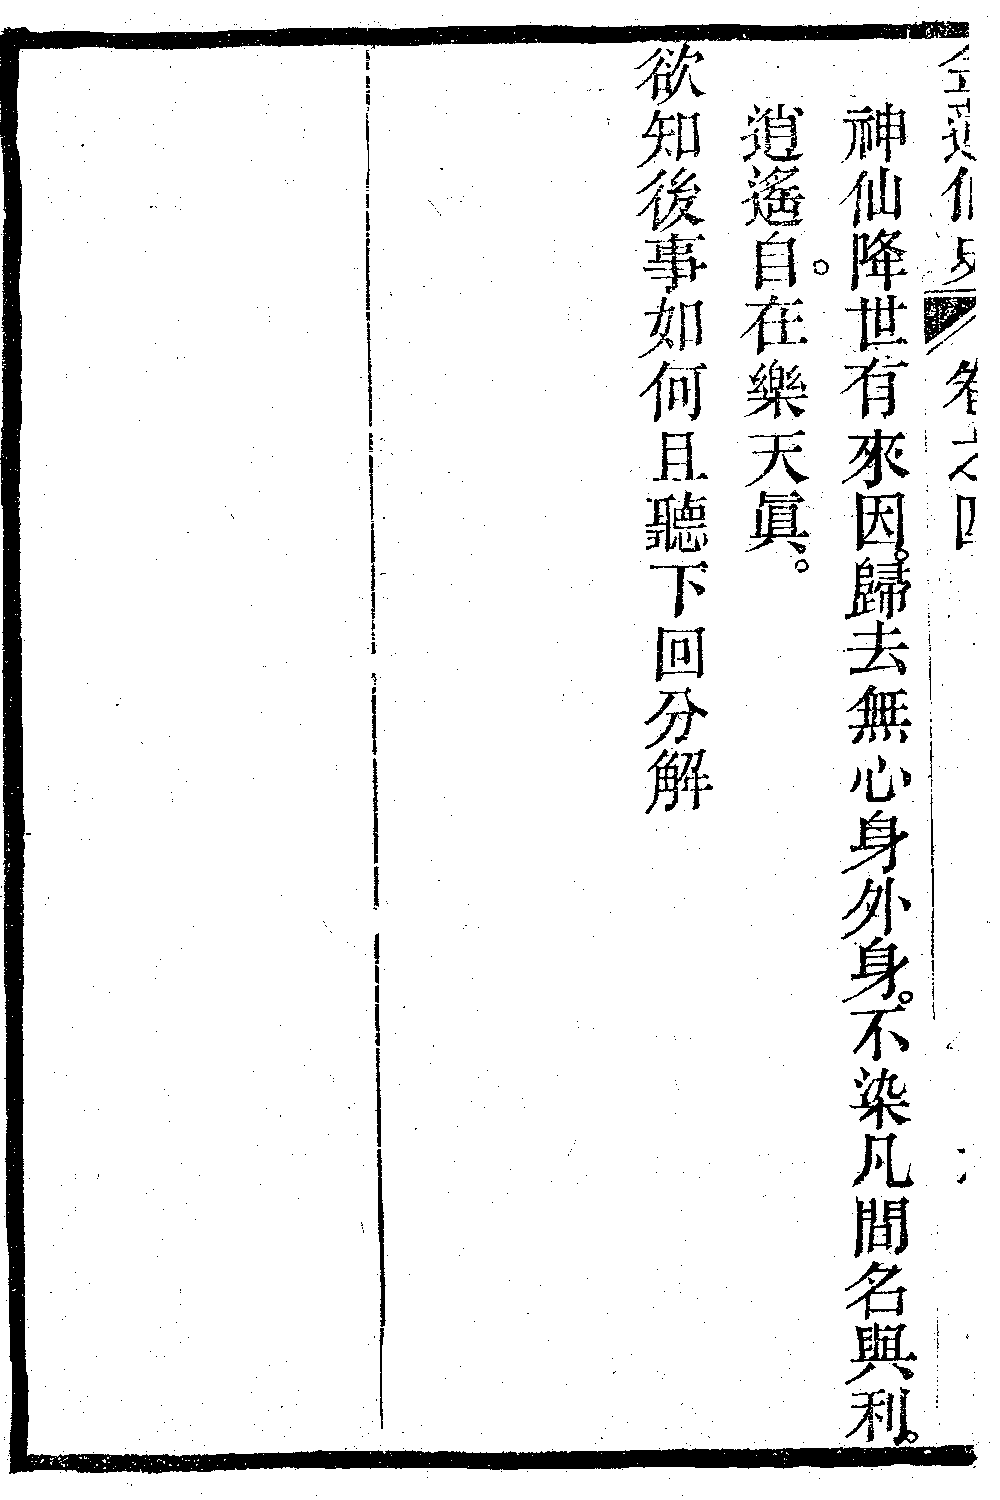 金蓮仙史 卷之四
神仙降世有來因。歸去無心身外身。不染凡間名與利。
逍遙自。在樂天眞。
欲知後事如何且聽下回分解